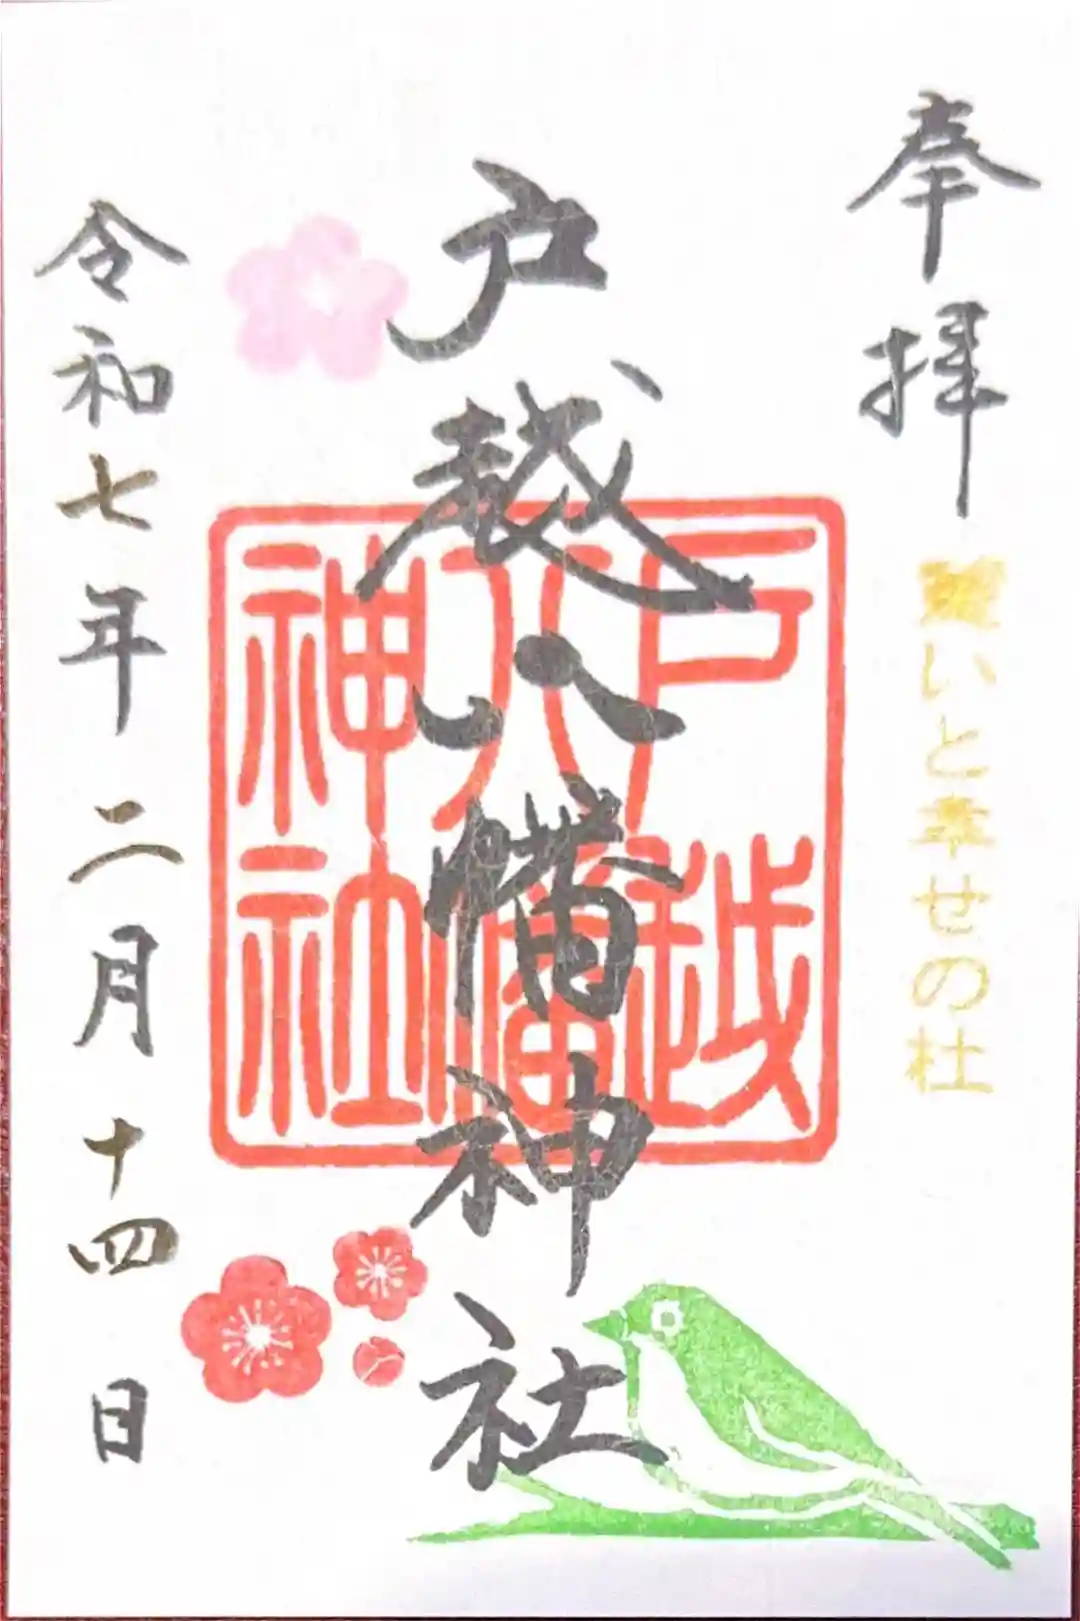 奉拝
いと幸せの杜
戸越八幡神社
戸越
八幡
神社
令和七年二月十四日